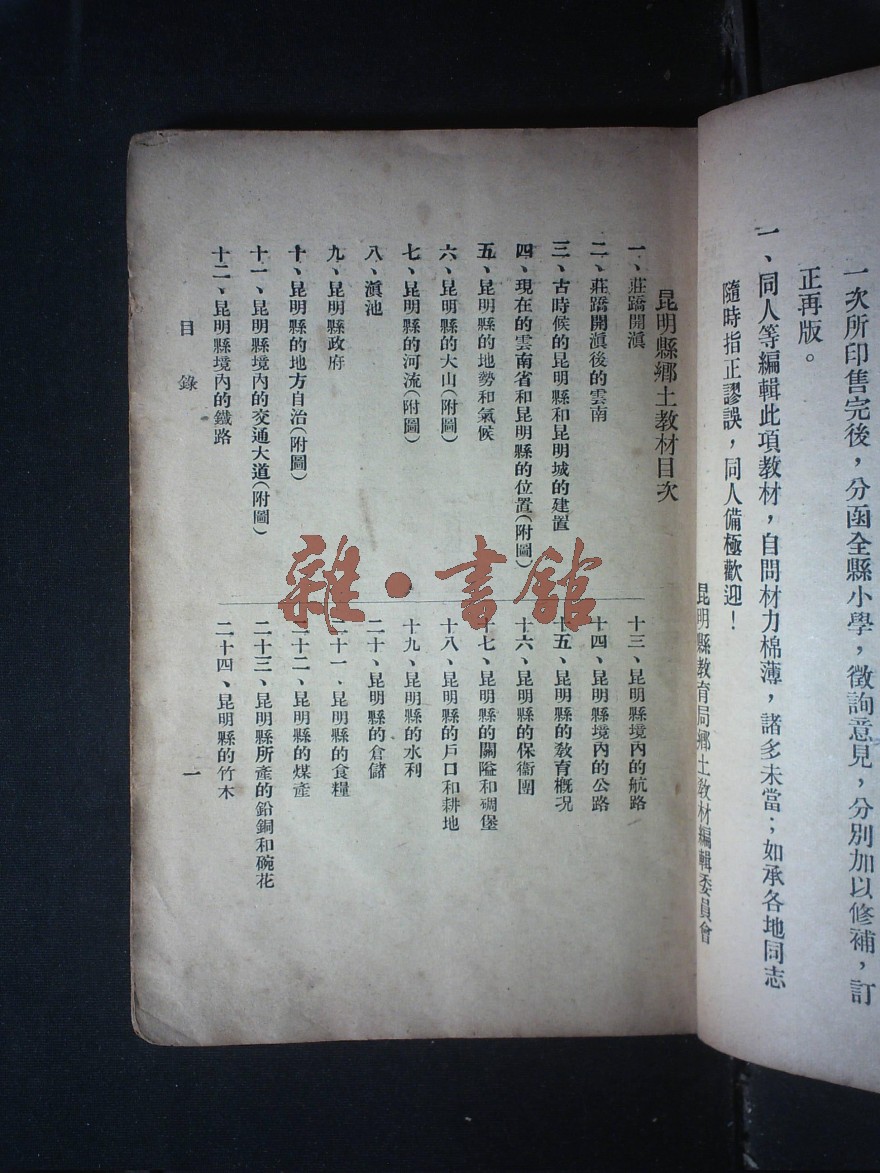 一次所印售完後，分函全縣小學，徵詢意見，分別加以修補，訂
正再版。
一、同人等編輯此項教材，自問材力棉薄，諸多未當；如承各地同志
隨時指正謬誤，同人備極歡迎！
昆明縣教育局鄉土教材編輯委員會
昆明縣鄉土教材目次
一、莊蹻開滇
二、莊蹻開滇後的雲南
三、古時候的昆明縣和昆明城的建置
四、現在的雲南省和昆明縣的位置(附圖)
五、昆明縣的地勢和氣候
六、昆明縣的大山(附圖)
七、昆明縣的河流(附圖)
八、滇池
九、昆明縣政府
十、昆明縣的地方自治(附圖)
十一、昆明縣境內的交通大道(附圖)
十二、昆明縣境內的鐵路
十三、昆明縣境內的航路
十四、昆明縣境內的公路
十五、昆明縣的教育概況
十六、昆明縣的保衞團
十七、昆明縣的關隘和碉堡
十八、昆明縣的戶口和耕地
十九、昆明縣的水利
二十、昆明縣的倉儲
二十一、昆明縣的食糧
二十二、昆明縣的煤產
二十三、昆明縣所產的鉛銅和碗花
二十四、昆明縣的竹木
目錄
一
雜·書館